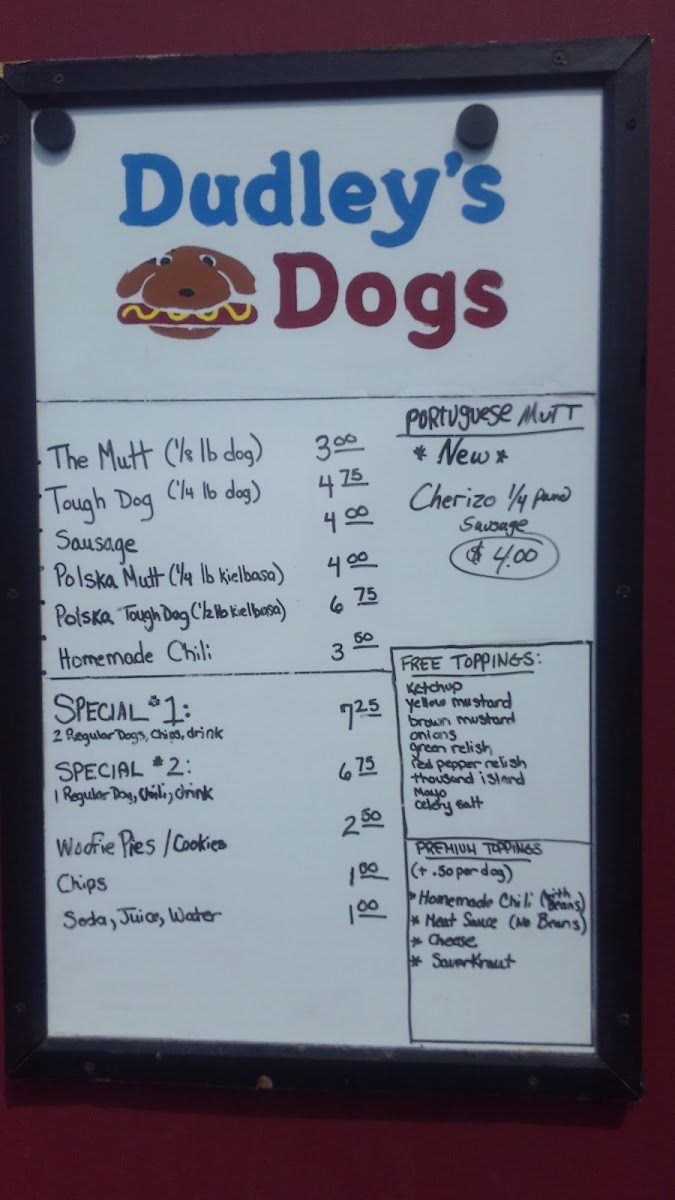 Dudley's
Dogs
The Mutt (1/8 lb dog) 3.00
Tough Dog (1/4 lb dog) 4.75
Sausage 4.00
Polska Mutt (1/4 lb kielbasa) 4.00
Polska Tough Dog (1/2 lb kielbasa) 6.75
Homemade Chili 3.50
SPECIAL #1: 7.25
2 Regular Dogs, Chips, drink
SPECIAL #2: 6.75
1 Regular Dog, Chili, drink
Woofie Pies / Cookies 2.50
Chips 1.00
Soda, Juice, Water 1.00
PORTUGUESE MUTT
* New *
Cherizo 1/4 pund
Sausage
$ 4.00
FREE TOPPINGS:
Ketchup
yellow mustard
brown mustard
onions
green relish
red pepper relish
thousand island
Mayo
celery salt
PREMIUM TOPPINGS
(+ .50 per dog)
* Homemade Chili (with Beans)
* Meat Sauce (No Beans)
* Cheese
* Saverkraut